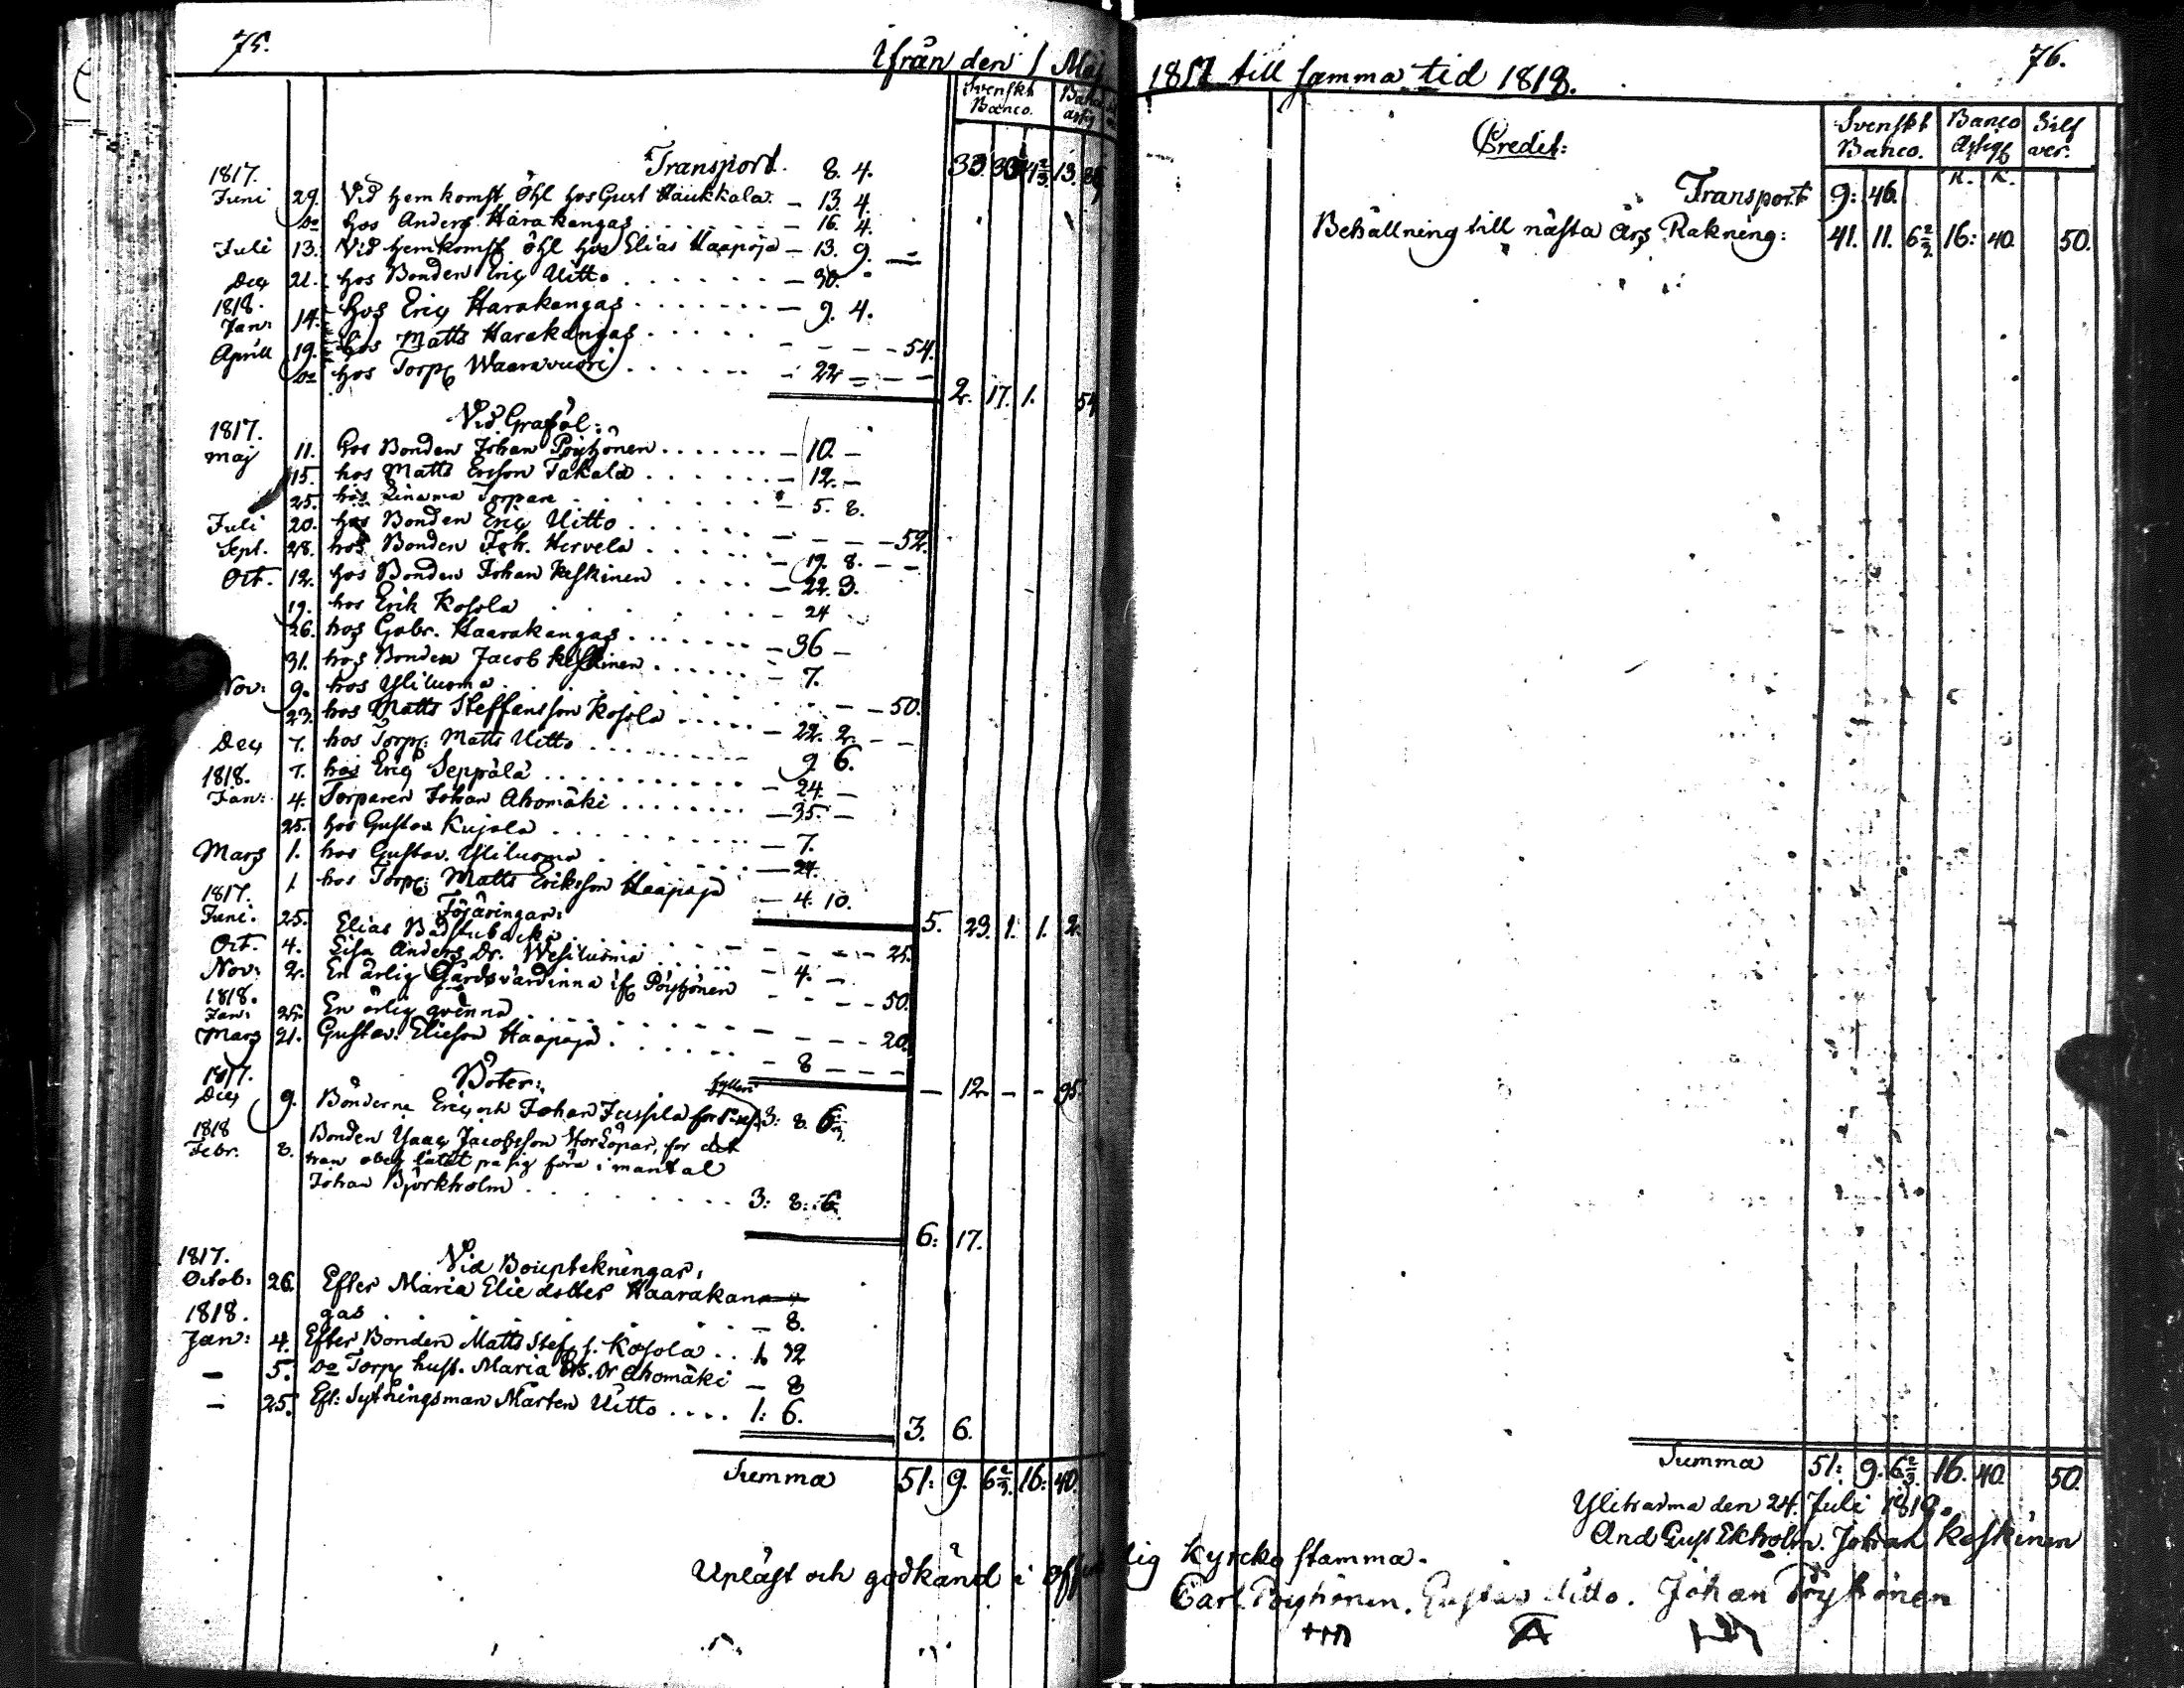 75.
Ifrån den 1 Maj
Svenskt Banco.
Transport. 8. 4. 33. 33. 4 2/3 13.
1817.
Juni 29. Vid hemkomst öhl hos Gust Haukkala. – 13. 4
Do hos Anders Harakangas – 16. 4.
Juli 13. Vid hemkomst öhl hos Elias Haapoja – 13. 9.
Dec 21. hos Bonden Eric Uitto – 30.
1818.
Jan: 14. hos Eric Harakangas – 9. 4.
Aprill 19. hos Matts Harakangas – – – 54.
Do hos Torp. Waaravuori – 22 – –
2. 17. 1. 54
Vid Graföl:
1817.
Maj 11. hos Bonden Johan Pöyhönen – 10. –
15. hos Matts Ersson Takala – 12. –
25. hos Linama Torpare – 5. 8.
Juli 20. hos Bonden Eric Uitto – – – 52.
Sept. 28. hos Bonden Joh. Hervela – 19. 8. – –
Oct. 12. hos Bonden Johan Keskinen – 22. 3.
19. hos Erik Kosola – 24
26. hos Gabr. Haarakangas – 36 –
31. hos Bonden Jacob Keskinen – 7.
Nov: 9. hos Yliluoma – – 50.
23. hos Matts Steffansson Kosola – 22. 2. – –
Dec 7. hos Torp: Matts Uitto 9 6.
7. hos Eric Seppälä – 24. –
1818.
Jan: 4. Torparen Johan Ahomäki – 35. –
25. hos Gustav Kujala – 7.
Mars 1. hos Gustav. Yliluoma – 24.
1. hos Torp: Matts Eriksson Haapoja – 4. 10.
5. 23. 1. 1. 2.
1817.
Juni. 25. Elias Badstubacka – – – 25.
Oct. 4. Lisa Anders Dr. Wesiluoma – 4. –
Nov: 2. En ärlig Gårdsvärdinna if Pöyhönen – – – 50.
1818.
Jan: 25. En ärlig qvinna – – – – 20.
Mars 21. Gustav. Elieson Haapoja – 8 – – –
– 12. – – 95.
Böter:
1817.
Dec 9. Bönderna Eric och Johan Jussila for fylleri 3: 8.
1818
Febr. 8. Bonden Isaac Jacobsson Storlöpar, for det
han ej låtit på sig föra i mantal
Johan Björkholm 3: 8: 6
6: 17.
Vid Bouptekningar:
1817.
Octob: 26. Efter Maria Elie dotter Haarakan
gas – 8.
1818.
Jan: 4. Efter Bonden Matts Stef. s. Kosola 1. 32
– 5. Do Torp hust. Maria Dr Ahomäki – 8
– 25. Eft: Sytningsman Mårten Uitto 1: 6.
3. 6.
Summa 51: 9. 6 2/3. 16: 40.
76.
1817 till samma tid 1818.
Credit:
Svenskt Banco. Banco Silfver.
R. K.
Transport 9: 46.
Behållning till nästa Års Räkning: 41. 11. 6 2/3 16: 40. 50.
Summa 51: 9. 6 2/3. 16. 40. 50.
Ylihärmä den 24. Juli 1819.
And Gust Ekholm. Johan Keskinen
Upläst och godkänd i offentlig Kyrcko stämma.
Carl. Pöyhönen. Gustav Uitto. Johan Pöyhönen